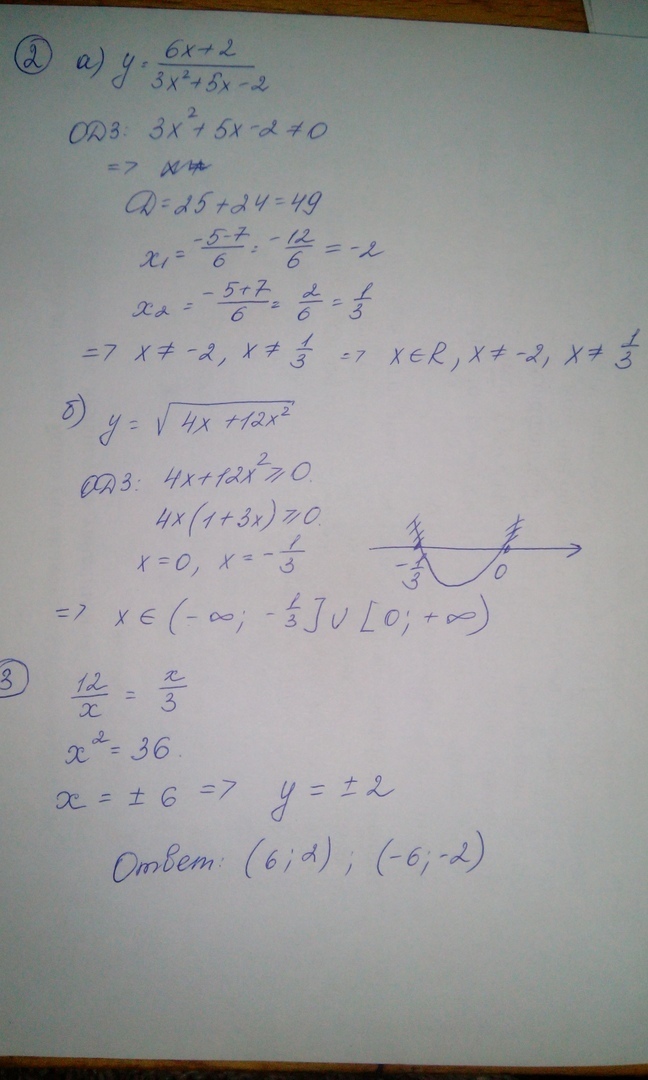 2 а) y = (6x+2)/(3x²+5x-2)
ОДЗ: 3x²+5x-2≠0
=>
D=25+24=49
x₁ = (-5-7)/6 = -12/6 = -2
x₂ = (-5+7)/6 = 2/6 = 1/3
=> x≠-2, x≠1/3 => x∈R, x≠-2, x≠1/3
б) y = √(4x+12x²)
ОДЗ: 4x+12x²≥0.
4x(1+3x)≥0.
x=0, x=-1/3
-1/3 0
=> x∈(-∞; -1/3]∪[0; +∞)
3 12/x = x/3
x²=36.
x=±6 => y=±2
Ответ: (6;2); (-6;-2)